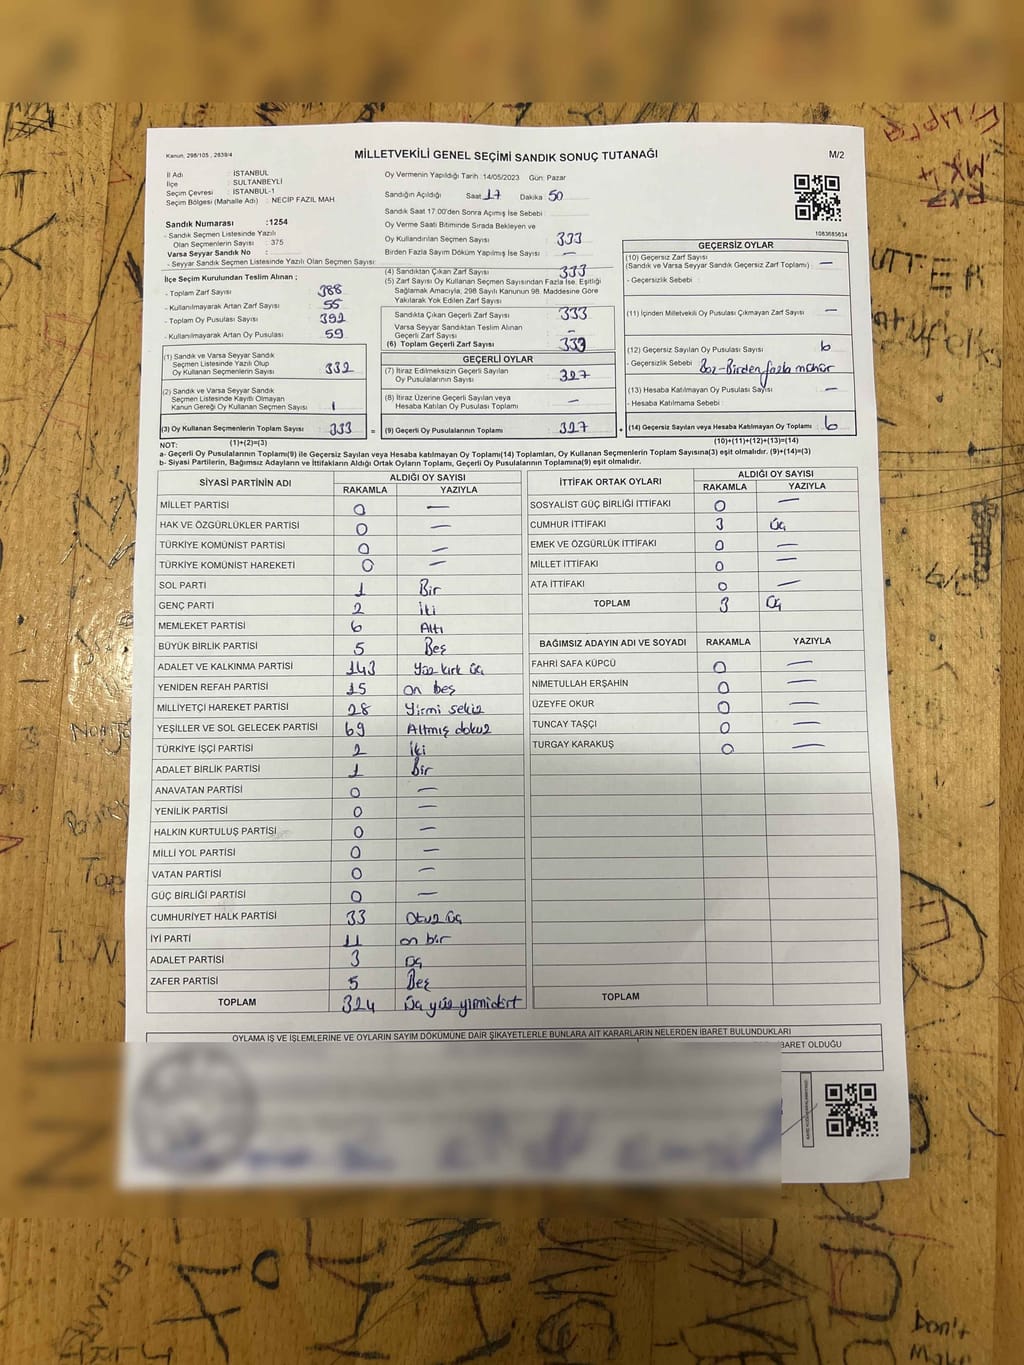 Kanun, 298/105 , 2839/4
MİLLETVEKİLİ GENEL SEÇİMİ SANDIK SONUÇ TUTANAĞI
M/2
İl Adı : İSTANBUL
İlçe : SULTANBEYLİ
Seçim Çevresi : İSTANBUL-1
Seçim Bölgesi (Mahalle Adı) : NECİP FAZIL MAH.
Sandık Numarası :1254
- Sandık Seçmen Listesinde Yazılı
Olan Seçmenlerin Sayısı : 375
Varsa Seyyar Sandık No :
- Seyyar Sandık Seçmen Listesinde Yazılı Olan Seçmen Sayısı:
Oy Vermenin Yapıldığı Tarih :14/05/2023 Gün: Pazar
Sandığın Açıldığı Saat 17 Dakika 50
Sandık Saat 17.00'den Sonra Açımış İse Sebebi :
Oy Verme Saati Bitiminde Sırada Bekleyen ve
Oy Kullandırılan Seçmen Sayısı : 333
Birden Fazla Sayım Döküm Yapılmış İse Sayısı : —
1083685634
İlçe Seçim Kurulundan Teslim Alınan ;
- Toplam Zarf Sayısı : 388
- Kullanılmayarak Artan Zarf Sayısı : 55
- Toplam Oy Pusulası Sayısı : 392
- Kullanılmayarak Artan Oy Pusulası : 59
(1) Sandık ve Varsa Seyyar Sandık
Seçmen Listesinde Yazılı Olup
Oy Kullanan Seçmenlerin Sayısı : 332
(2) Sandık ve Varsa Seyyar Sandık
Seçmen Listesinde Kayıtlı Olmayan
Kanun Gereği Oy Kullanan Seçmen Sayısı : 1
(3) Oy Kullanan Seçmenlerin Toplam Sayısı : 333 =
(4) Sandıktan Çıkan Zarf Sayısı : 333
(5) Zarf Sayısı Oy Kullanan Seçmen Sayısından Fazla İse, Eşitliği
Sağlamak Amacıyla, 298 Sayılı Kanunun 98. Maddesine Göre
Yakılarak Yok Edilen Zarf Sayısı :
Sandıkta Çıkan Geçerli Zarf Sayısı : 333
Varsa Seyyar Sandıktan Teslim Alınan
Geçerli Zarf Sayısı : —
(6) Toplam Geçerli Zarf Sayısı : 333
GEÇERLİ OYLAR
(7) İtiraz Edilmeksizin Geçerli Sayılan
Oy Pusulalarının Sayısı : 327
(8) İtiraz Üzerine Geçerli Sayılan veya
Hesaba Katılan Oy Pusulası Toplamı : —
(9) Geçerli Oy Pusulalarının Toplamı : 327 +
GEÇERSİZ OYLAR
(10) Geçersiz Zarf Sayısı
(Sandık ve Varsa Seyyar Sandık Geçersiz Zarf Toplamı) : —
- Geçersizlik Sebebi :
(11) İçinden Milletvekili Oy Pusulası Çıkmayan Zarf Sayısı : —
(12) Geçersiz Sayılan Oy Pusulası Sayısı : 6
- Geçersizlik Sebebi : Boz-Birden fazla mühür
(13) Hesaba Katılmayan Oy Pusulası Sayısı : —
- Hesaba Katılmama Sebebi :
(14) Geçersiz Sayılan veya Hesaba Katılmayan Oy Toplamı : 6
NOT: (1)+(2)=(3) (10)+(11)+(12)+(13)=(14)
a- Geçerli Oy Pusulalarının Toplamı(9) ile Geçersiz Sayılan veya Hesaba katılmayan Oy Toplamı(14) Toplamları, Oy Kullanan Seçmenlerin Toplam Sayısına(3) eşit olmalıdır. (9)+(14)=(3)
b- Siyasi Partilerin, Bağımsız Adayların ve İttifakların Aldığı Ortak Oyların Toplamı, Geçerli Oy Pusulalarının Toplamına(9) eşit olmalıdır.
SİYASİ PARTİNİN ADI ALDIĞI OY SAYISI
RAKAMLA YAZIYLA
MİLLET PARTİSİ 0 —
HAK VE ÖZGÜRLÜKLER PARTİSİ 0 —
TÜRKİYE KOMÜNİST PARTİSİ 0 —
TÜRKİYE KOMÜNİST HAREKETİ 0 —
SOL PARTİ 1 Bir
GENÇ PARTİ 2 İki
MEMLEKET PARTİSİ 6 Altı
BÜYÜK BİRLİK PARTİSİ 5 Beş
ADALET VE KALKINMA PARTİSİ 143 Yüz kırk üç
YENİDEN REFAH PARTİSİ 15 on beş
MİLLİYETÇİ HAREKET PARTİSİ 28 Yirmi sekiz
YEŞİLLER VE SOL GELECEK PARTİSİ 69 Altmış dokuz
TÜRKİYE İŞÇİ PARTİSİ 2 İki
ADALET BİRLİK PARTİSİ 1 Bir
ANAVATAN PARTİSİ 0 —
YENİLİK PARTİSİ 0 —
HALKIN KURTULUŞ PARTİSİ 0 —
MİLLİ YOL PARTİSİ 0 —
VATAN PARTİSİ 0 —
GÜÇ BİRLİĞİ PARTİSİ 0 —
CUMHURİYET HALK PARTİSİ 33 Otuz üç
İYİ PARTİ 11 on bir
ADALET PARTİSİ 3 üç
ZAFER PARTİSİ 5 Beş
TOPLAM 324 Üç yüz yirmidört
İTTİFAK ORTAK OYLARI ALDIĞI OY SAYISI
RAKAMLA YAZIYLA
SOSYALİST GÜÇ BİRLİĞİ İTTİFAKI 0 —
CUMHUR İTTİFAKI 3 üç
EMEK VE ÖZGÜRLÜK İTTİFAKI 0 —
MİLLET İTTİFAKI 0 —
ATA İTTİFAKI 0 —
TOPLAM 3 Üç
BAĞIMSIZ ADAYIN ADI VE SOYADI RAKAMLA YAZIYLA
FAHRİ SAFA KÜPCÜ 0 —
NİMETULLAH ERŞAHİN 0 —
ÜZEYFE OKUR 0 —
TUNCAY TAŞÇI 0 —
TURGAY KARAKUŞ 0 —
TOPLAM
OYLAMA İŞ VE İŞLEMLERİNE VE OYLARIN SAYIM DÖKÜMÜNE DAİR ŞİKAYETLERLE BUNLARA AİT KARARLARIN NELERDEN İBARET BULUNDUKLARI
BARET OLDUĞU
Don't